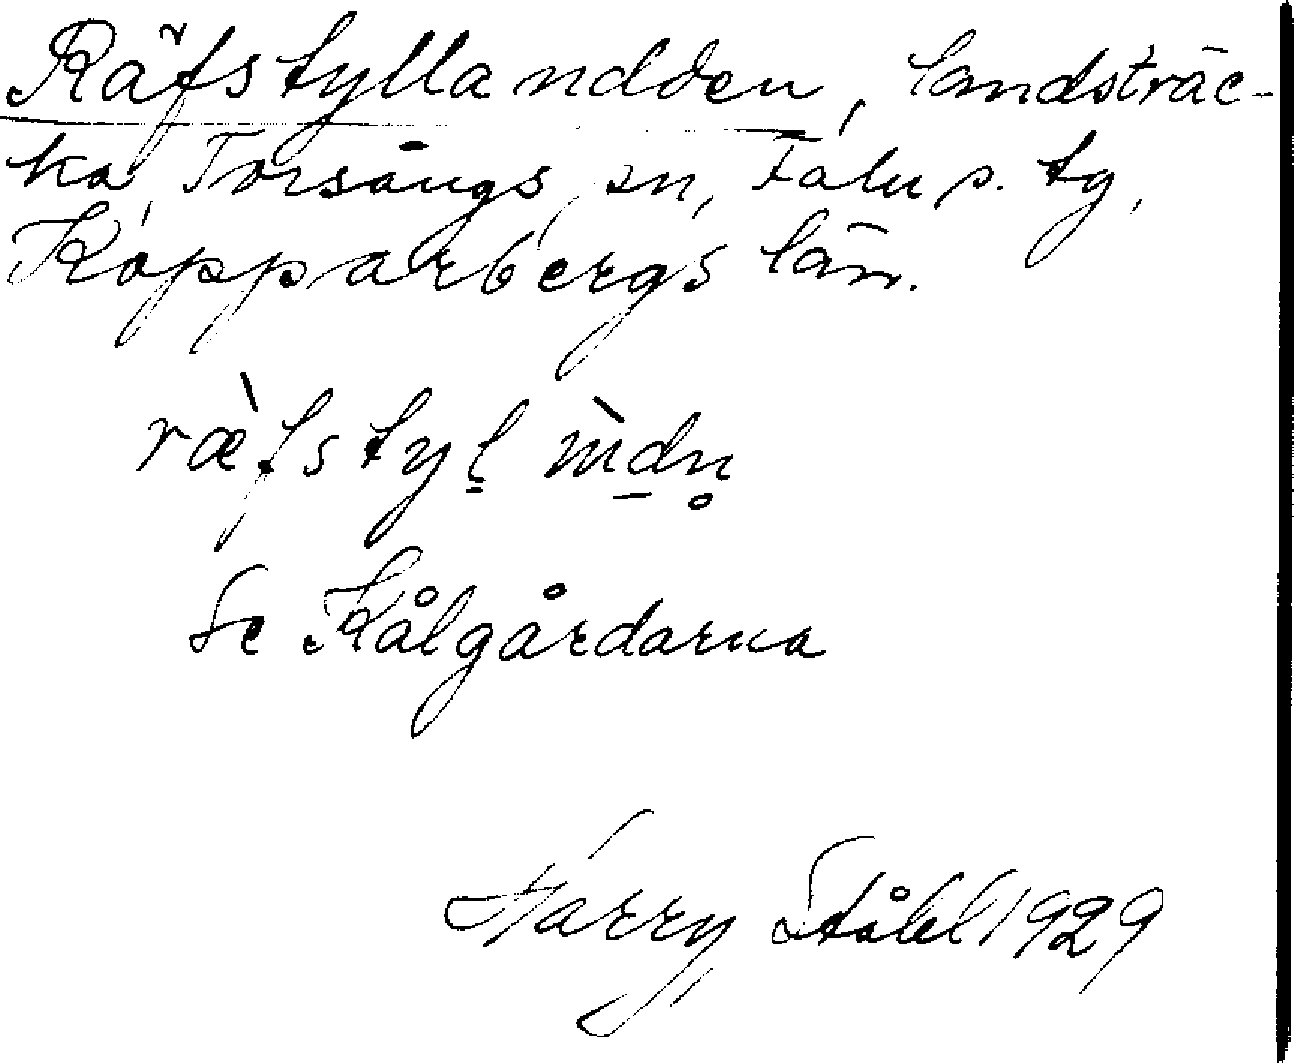 Räfstyllandden, landsträc-
ka, Torsångs sn, Falu s. tg,
Kopparbergs län.
ræ̀fstyl m̀dn̥
Se Kålgårdarna
Harry Ståhl 1929